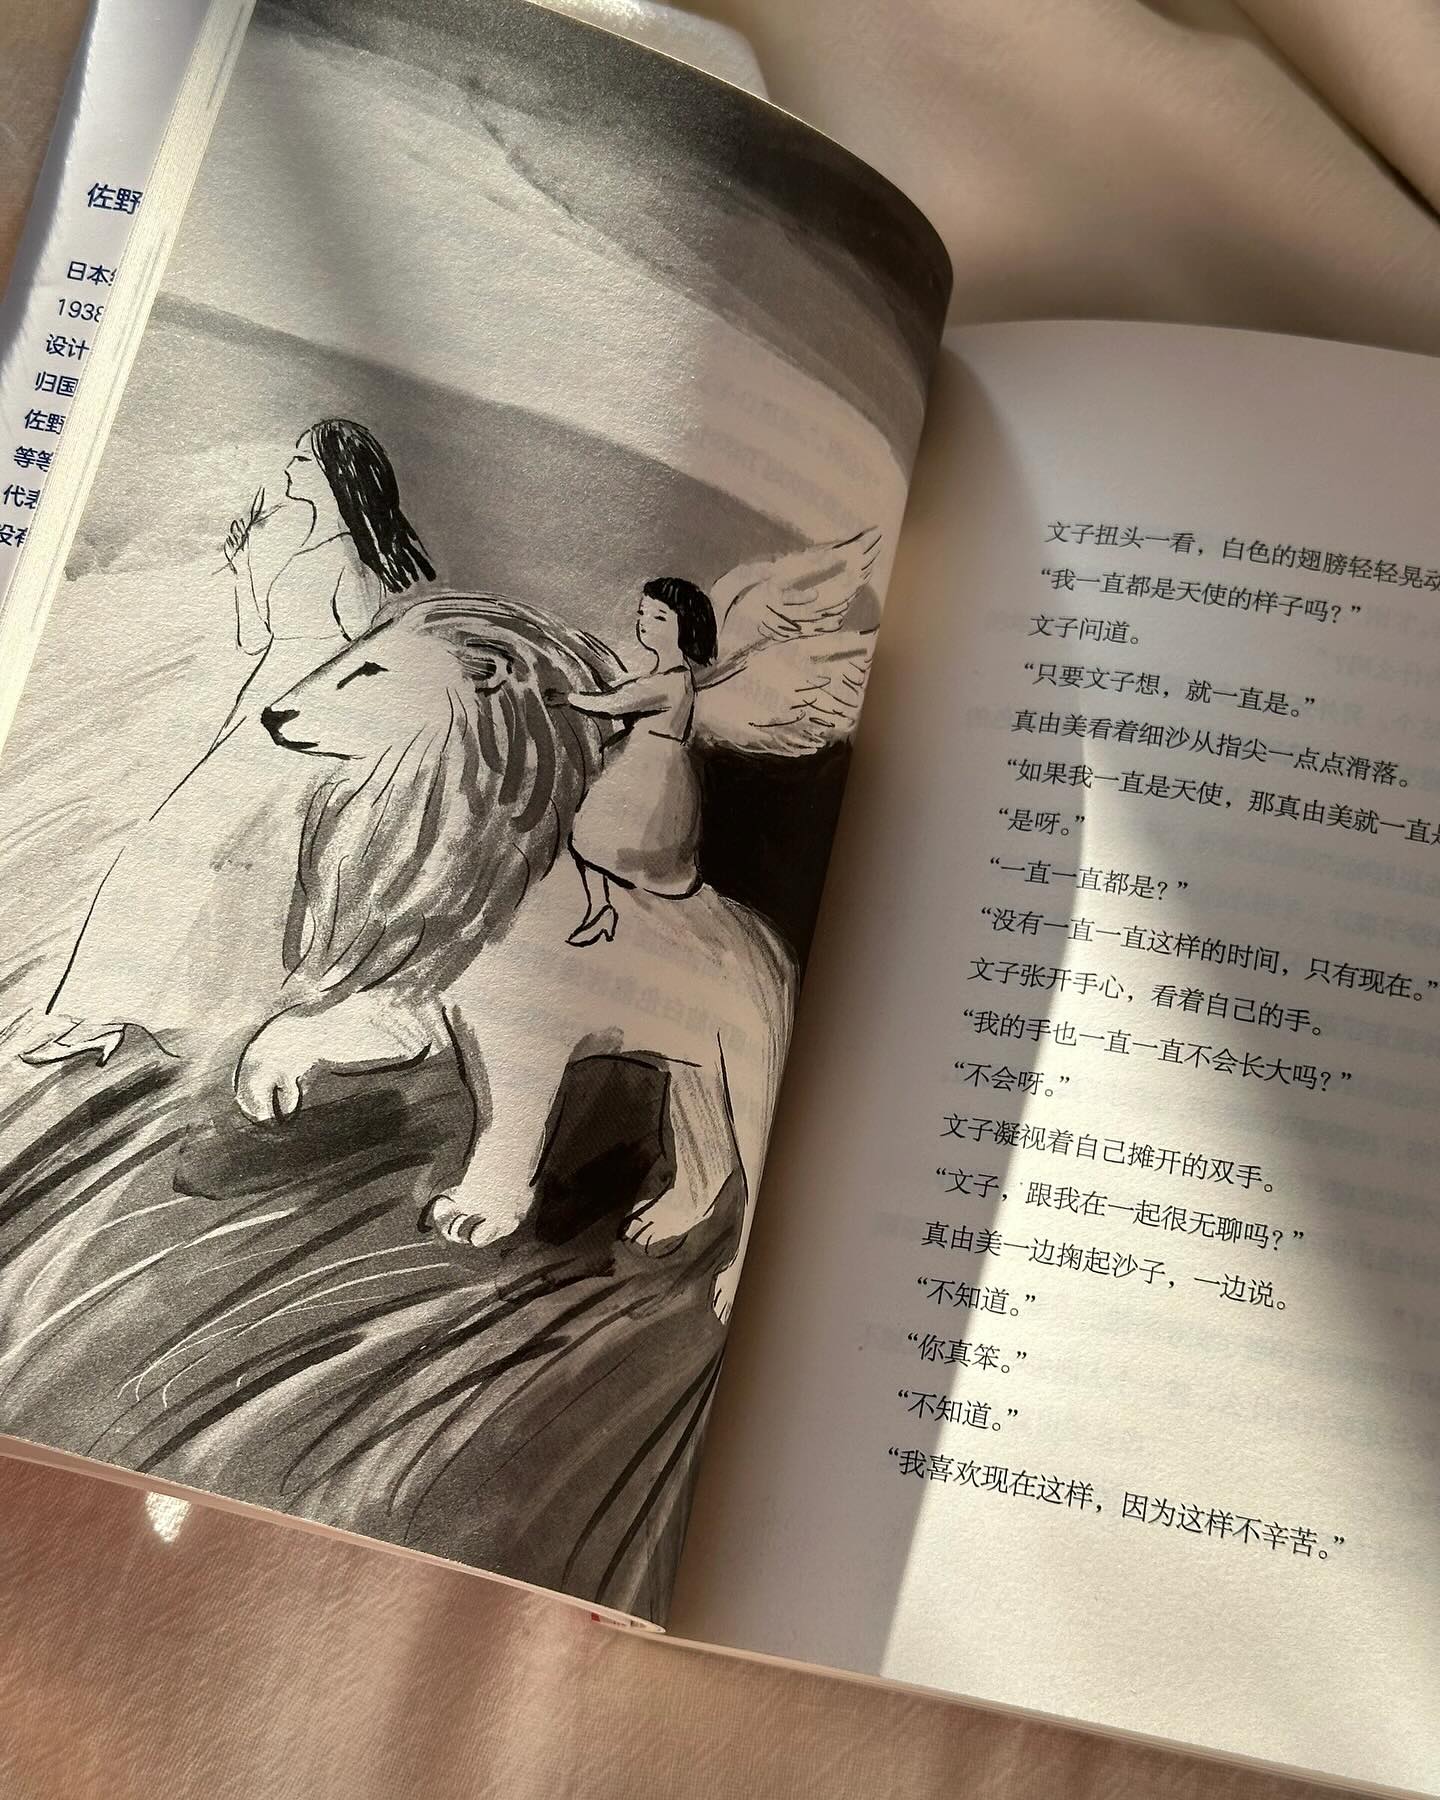 佐野
日本
1938
设计
归国
佐野
等等
代表
没有
文子扭头一看，白色的翅膀轻轻晃动
“我一直都是天使的样子吗？”
文子问道。
“只要文子想，就一直是。”
真由美看着细沙从指尖一点点滑落。
“如果我一直是天使，那真由美就一直是
“是呀。”
“一直一直都是？”
“没有一直一直这样的时间，只有现在。”
文子张开手心，看着自己的手。
“我的手也一直一直不会长大吗？”
“不会呀。”
文子凝视着自己摊开的双手。
“文子，跟我在一起很无聊吗？”
真由美一边掬起沙子，一边说。
“不知道。”
“你真笨。”
“不知道。”
“我喜欢现在这样，因为这样不辛苦。”